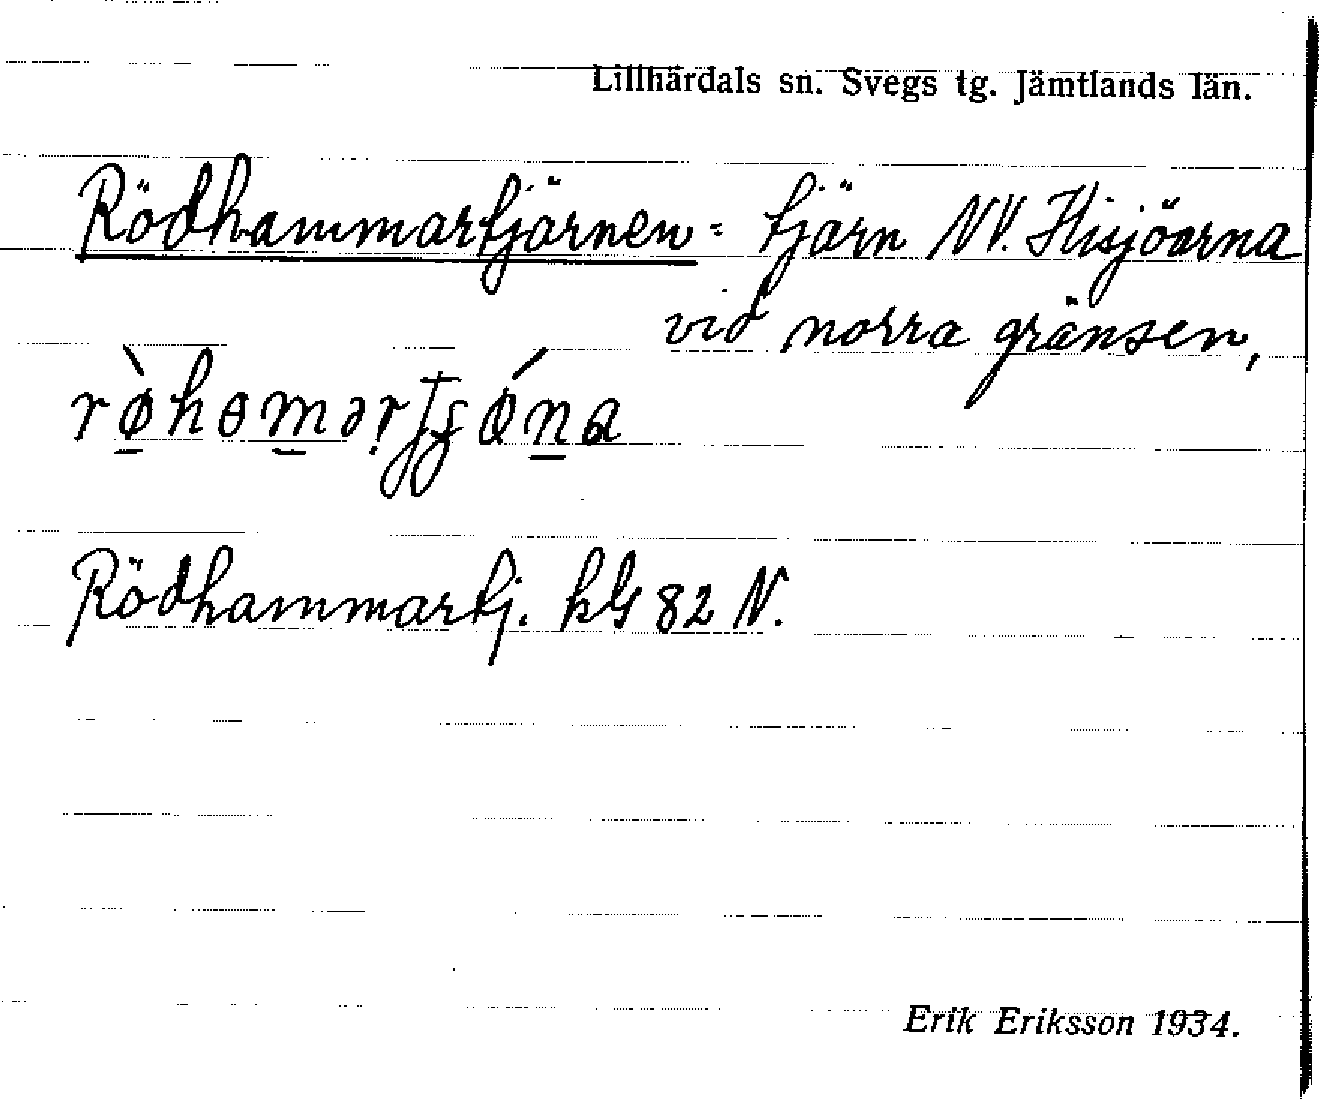 Lillhärdals sn. Svegs tg. Jämtlands län.
Rödhammartjärnen = tjärn NV. Hisjöarna
vid norra gränsen,
Rödhammartj. kG 82 N.
Erik Eriksson 1934.